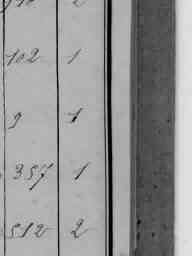 102 1
9 1
357 1
512 2